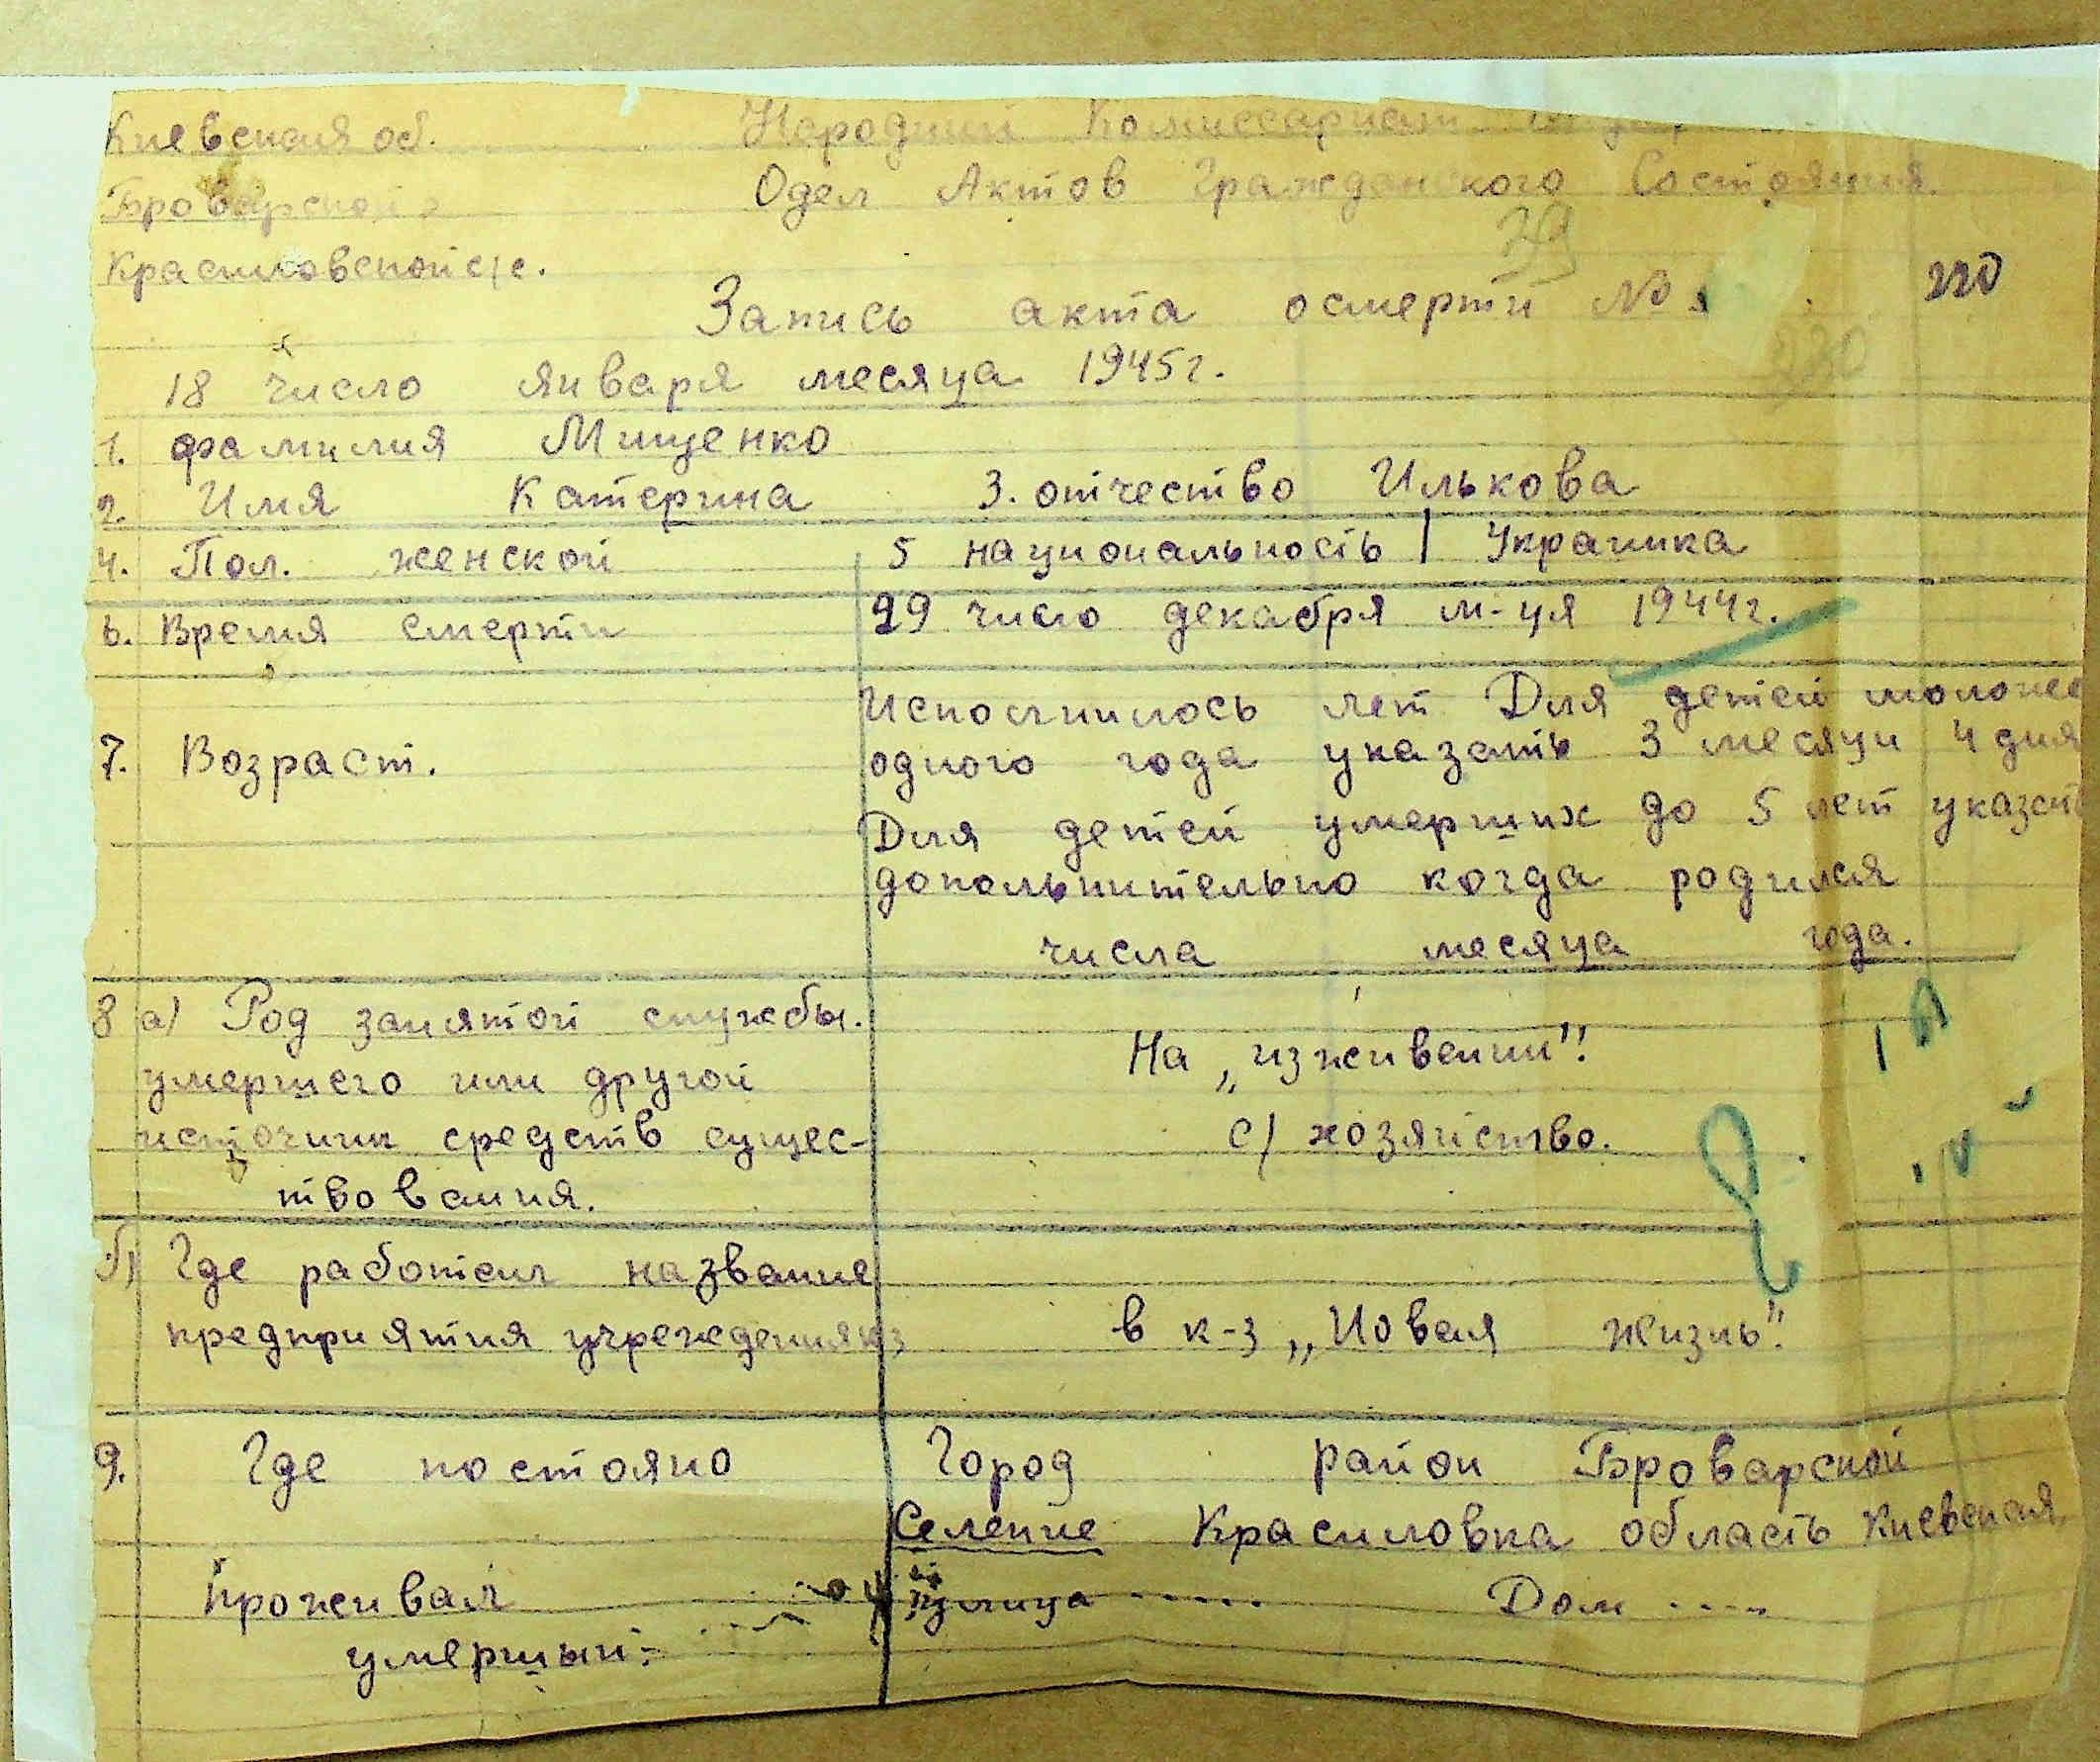 Киевская об. Народний Комиссариат
Броварской
Одел Актов Гражданского Состояния.
Красиловской с/с.
29
Запись акта осмерти № 1 220
230
18 число января месяца 1945г.
1. фамилия Мищенко
2. Имя Катерина 3. отчество Илькова
4. Пол. женской 5 национальность | Украинка
6. Время смерти 29 число декабря м-ця 1944г.
Исполнилось лет Для детей моложее
7. Возраст. одного года указать 3 месяци 4 дня
Для детей умерших до 5 лет указать
дополнительно когда родился
числа месяца года.
8 а) Род занятой службы.
На „изживении".
умершего или другой
источник средств сущес-
с/хозяйство.
твования.
б) Где работал название
предприятия учреждения кз в к-з „Новая жизнь".
9. Где постояно Город район Броварской
Селение Красиловка область Киевская
Проживал улица ..... Дом ....
умерший: